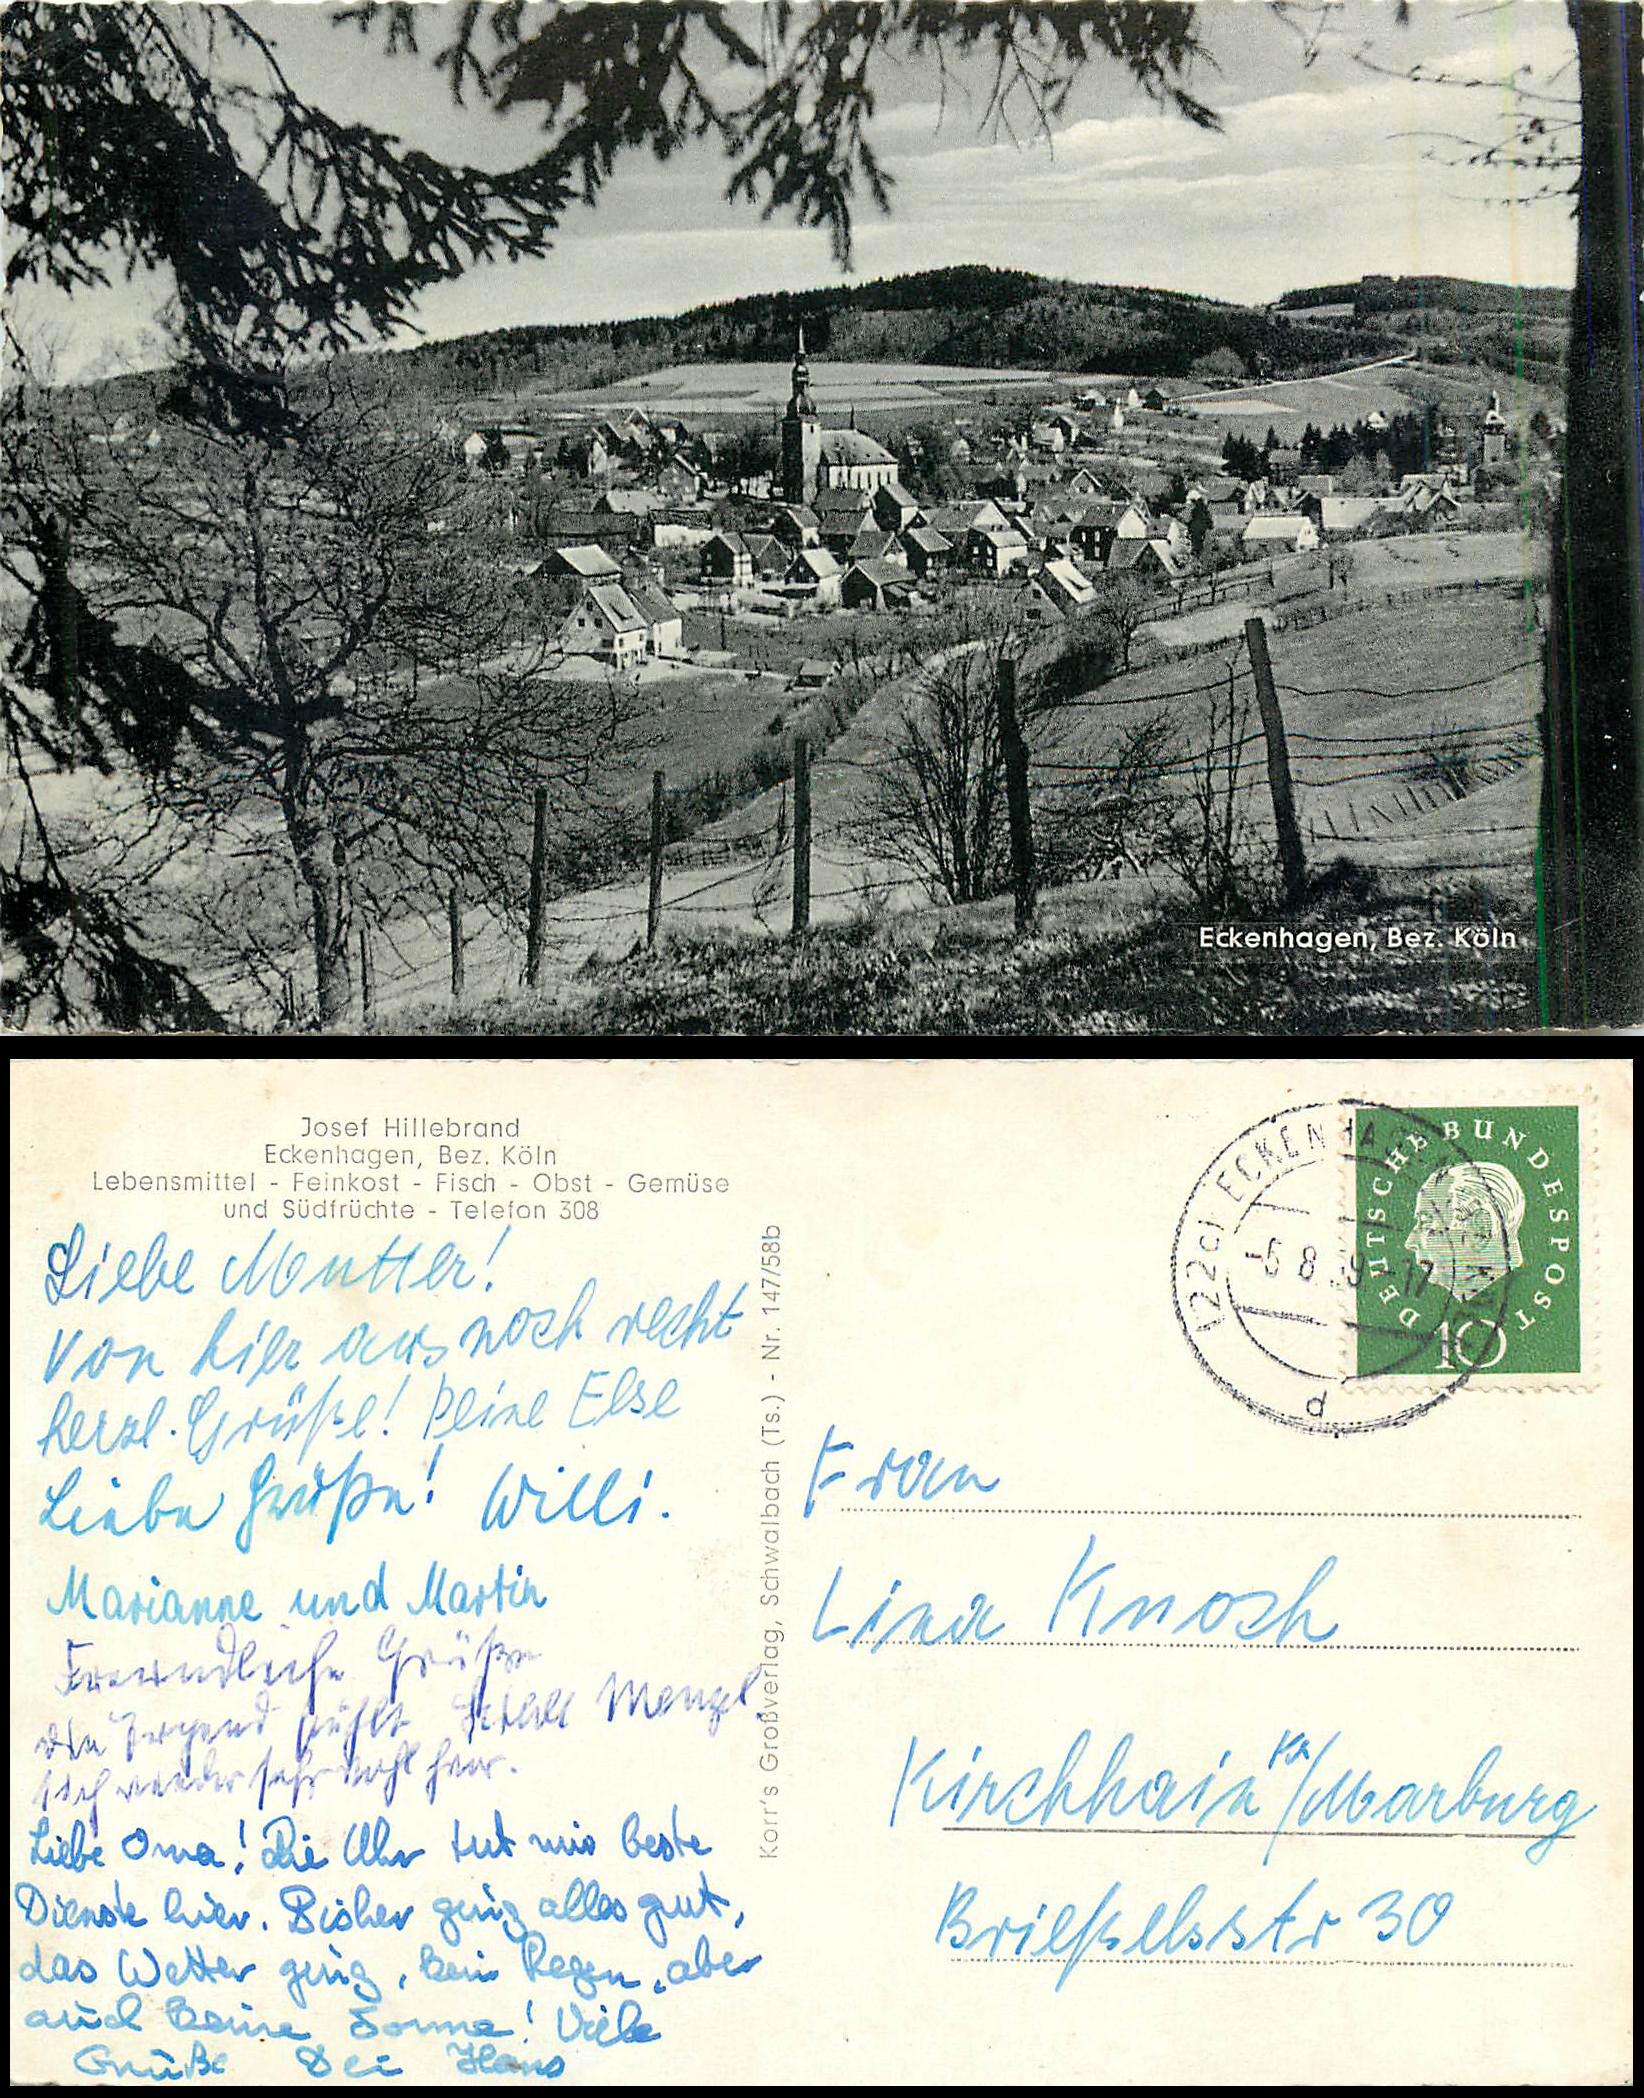 Eckenhagen, Bez. Köln
Josef Hillebrand
Eckenhagen, Bez. Köln
Lebensmittel - Feinkost - Fisch - Obst - Gemüse
und Südfrüchte - Telefon 308
Liebe Mutter!
Von hier aus noch recht
herzl. Grüße! Deine Else
Liebe Grüße! Willi.
Marianne und Martin
Freundliche Grüße
die Jugend fühlt Menzel
sich wieder sehr wohl hier.
Liebe Oma! Die Uhr tut mir beste
Dienste hier. Bisher ging alles gut,
das Wetter ging, kein Regen, aber
auch keine Sonne! Viele
Grüße Dei Hans
Korr's Großverlag, Schwalbach (Ts.) - Nr. 147/58b
(22c) ECKENHAGEN
-5.8.59-17
d
DEUTSCHE BUNDESPOST
10
Frau
Lina Knoch
Kirchhain Kr/Marburg
Brießelsstr 30